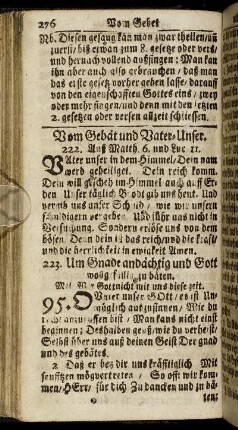 276 Vom Gebet
Nb. Diesen gesang kan man zwar theilen/uñ
zuerst/bis etwan zum 8. gesetze oder vers/
und hernach vollend außsingen: Man kan
ihn aber auch also gebrauchen/ daß man
das erste gesetz vorher gehen lasse/ darauff
von den eigenschafften Gottes eins / zwey
oder mehr singen/und denn mit den letzten
2. gesetzen oder versen allzeit schliessen.
Vom Gebät und Vater-Unser.
222. Auß Matth. 6. und Luc. 11.
VAter unser in dem Himmel/Dein nam
werd geheiliget. Dein reich komm.
Dein will gescheh im Himmel auch auff Er-
den. Unser täglich Brodt gib uns heut. Und
vergib uns unser Schuld / wie wir unsern
schuldigern vergeben. Und führ uns nicht in
Versuchung. Sondern erlöse uns von dem
bösen. Denn dein ist das reich/und die krafft/
und die herrlichkeit in ewigkeit Amen.
223. Um Gnade andächtig und Gott
wolgefällig zu bäten.
Mel. Wo Gott nicht mit uns diese zeit.
95. O Vater unser GOtt / es ist Un-
möglich außzusinnen / Wie du
recht anzuruffen bist / Man kans nicht
beginnen; Deshalben geuß/wie du verheist/
Selbst über uns auß deinen Geist Der gnad
und des gebätes.
2 Daß er bey dir uns kräfftiglich Mit
seufftzen mög vertreten / So offt wir kom-
men/HErr/ für dich Zu dancken und zu bä-
ten: